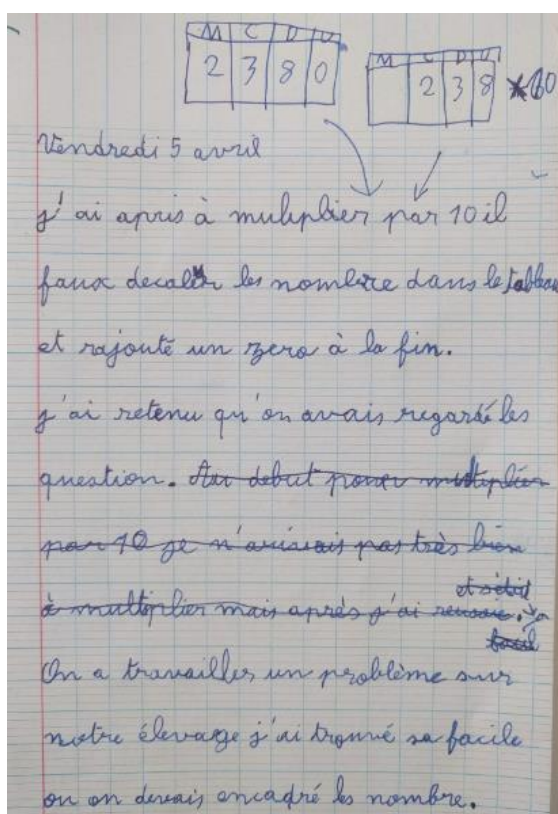 M C D U
2 3 8 0
M C D U
2 3 8 x10
Vendredi 5 avril
j'ai apris à muliplier par 10 il
faux decaler les nombre dans le tableau
et rajouté un zero à la fin.
j'ai retenu qu'on avais regardé les
question. Au debut pour multiplier
par 10 je n'arivais pas très bien
à multiplier mais après j'ai reussie. et s'était
facil
On a travailler un problème sur
notre élevage j'ai trouvé sa facile
ou on devais encadré les nombre.